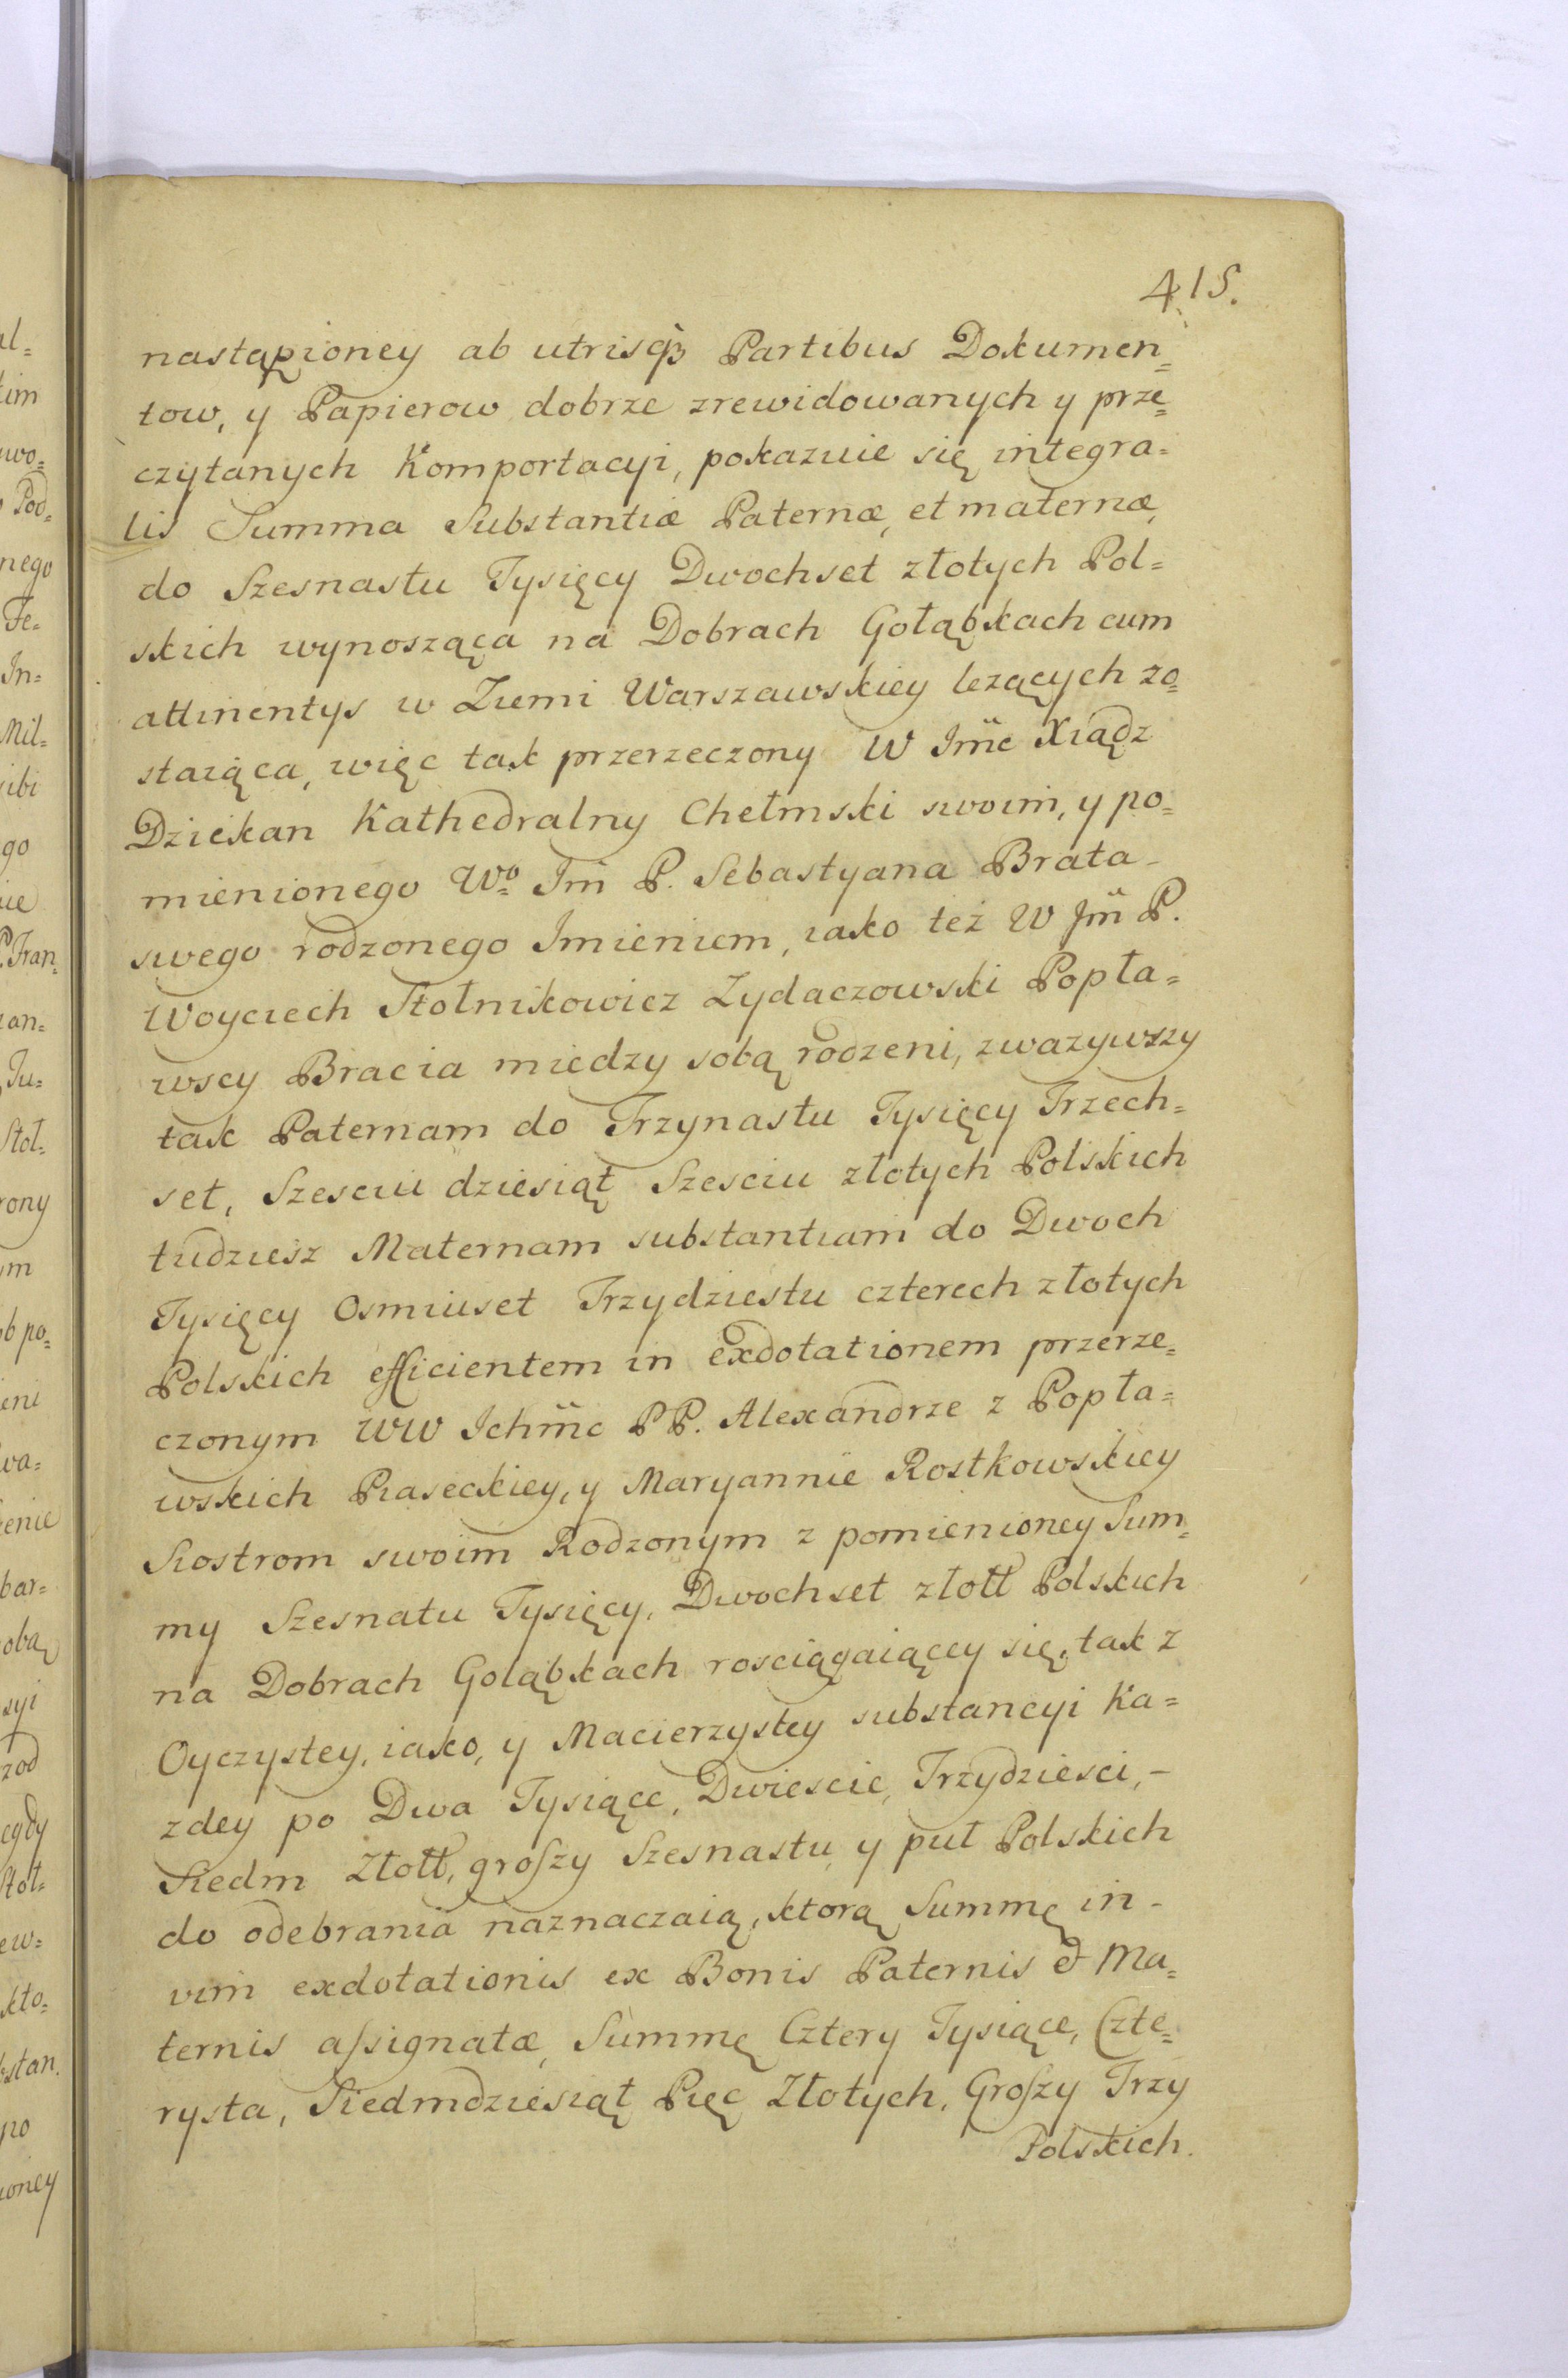 415.
nastąpioney ab utrisqȝ Partibus Dokumen=
tow, y Papierow dobrze zrewidowanych y prze=
czytanych Komportacyi, pokazuie się integra=
lis Summa Substantiæ Paternæ, et maternæ,
do Szesnastu Tysięcy Dwochset złotych Pol=
skich wynosząca na Dobrach Gołąbkach cum
attinentys w Ziemi Warszawskiey lezących zo=
staiąca, więc tak przerzeczony W Jmc Xiądz
Dziekan Kathedralny Chełmski swoim, y po=
mienionego Wo Jm P. Sebastyana Brata
swego rodzonego Imieniem, iako też W Jm P.
Woyciech Stolnikowicz Zydaczowski Popła=
wscy Bracia miedzy sobą rodzeni, zwazywszy
tak Paternam do Trzynastu Tysięcy Trzech=
set, Szesciu dziesiąt Szesciu złotych Polskich
tudziesz Maternam substantiam do Dwoch
Tysięcy Osmiuset Trzydziestu czterech złotych
Polskich efficientem in exdotationem przerze=
czonym WW Ichmc PP. Alexandrze z Popła=
wskich Piaseckiey, y Maryannie Rostkowskiey
Siostrom swoim Rodzonym z pomienioney Sum=
my Szesnatu Tysięcy, Dwochset złott Polskich
na Dobrach Goląbkach rosciągaiącey się, tak z
Oyczystey, iako, y Macierzystey substancyi Ka=
zdey po Dwa Tysiące, Dwiescie, Trzydziesci, -
Siedm Złott, groszy Szesnastu y puł Polskich
do odebrania naznaczaią, ktorą Summę in -
vim exdotationis ex Bonis Paternis & Ma=
ternis assignatæ, Summę Cztery Tysiące, Czte=
rysta, Siedmdziesiąt Pięc Złotych, Groszy Trzy
Polskich.